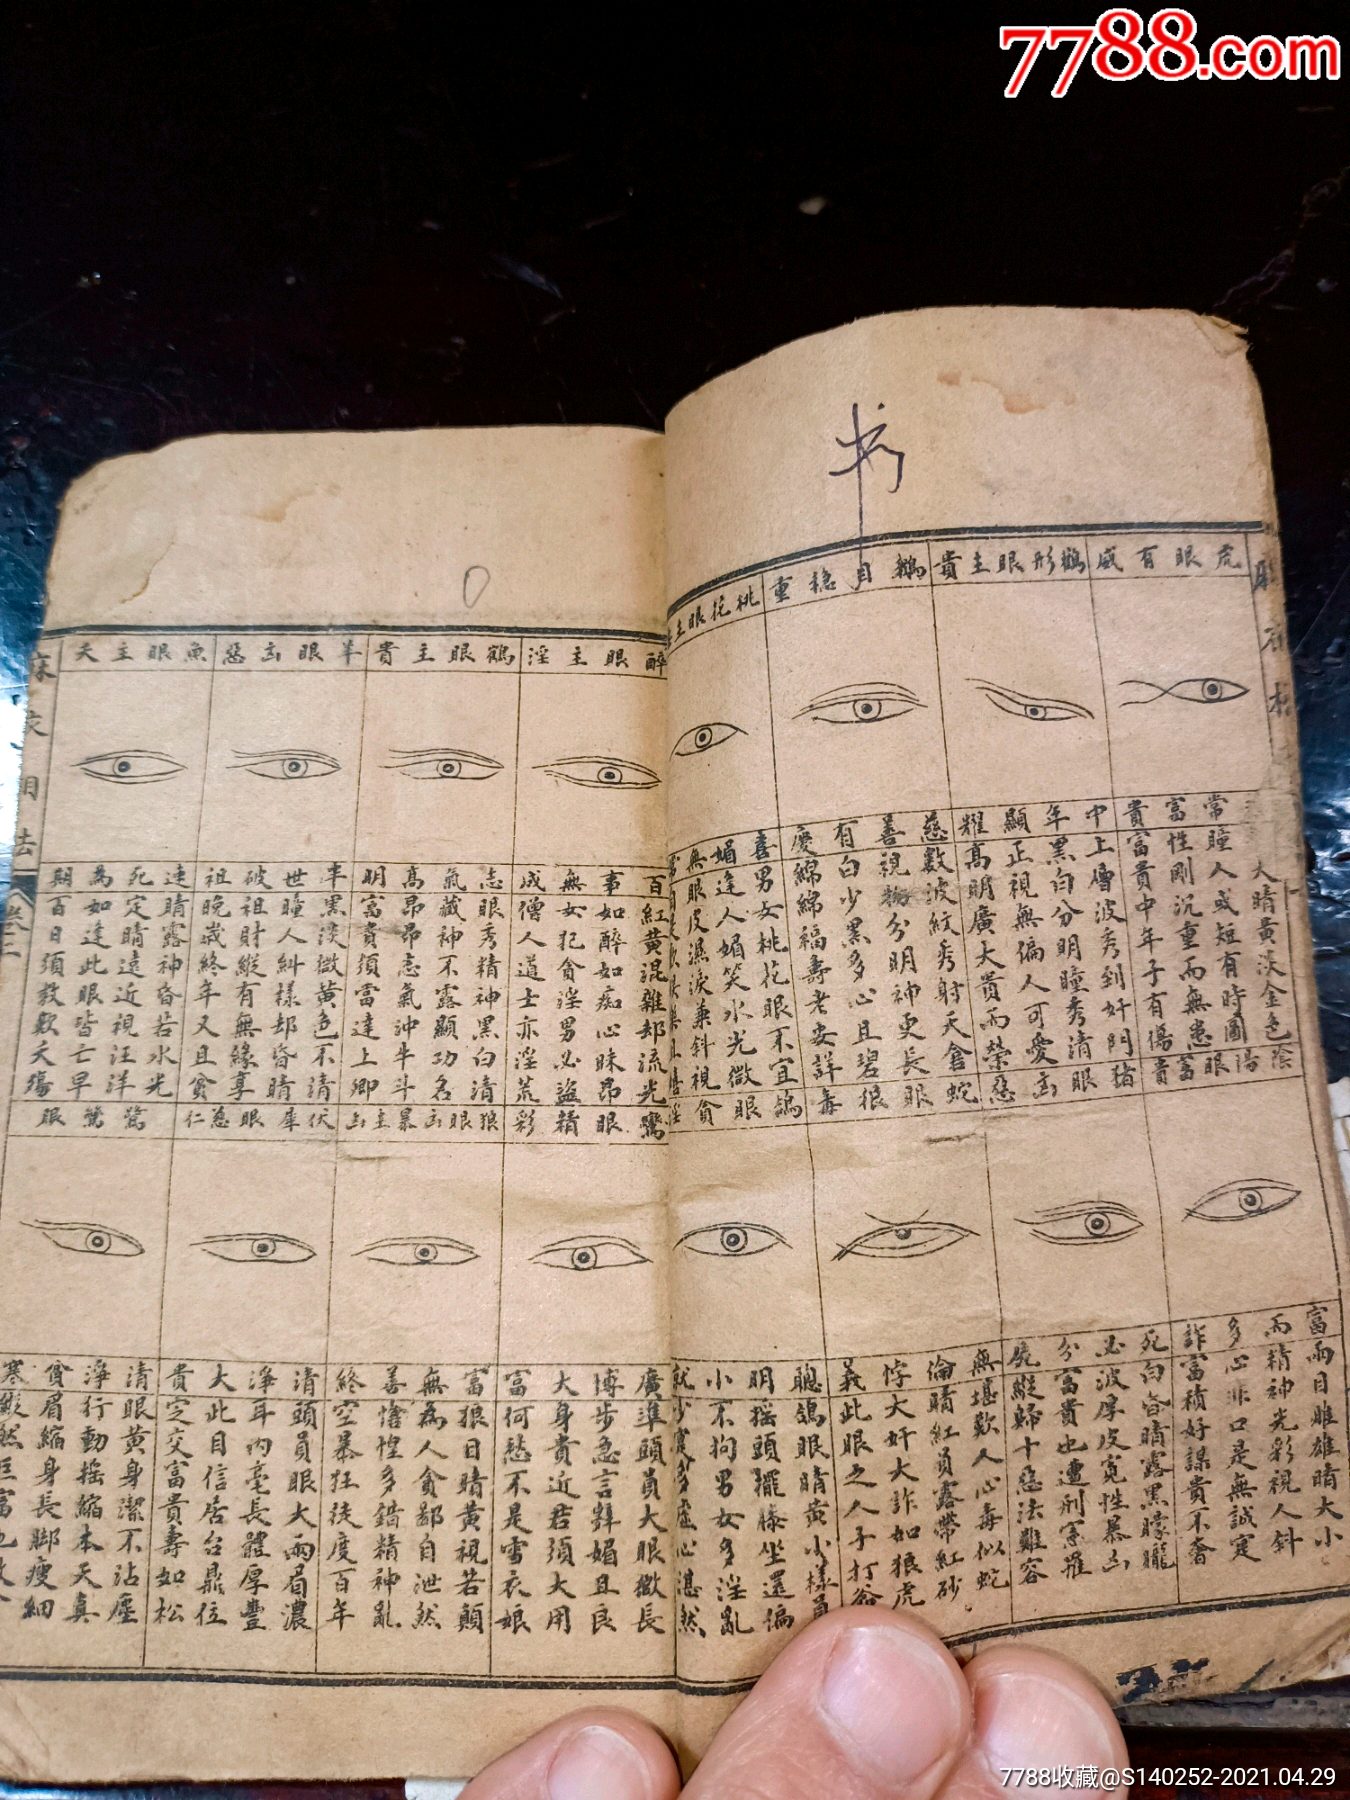 7788.com
书
虎眼有威
鶴形眼主貴
鵝目穩重
桃花眼主
常富貴
大睛黃淡金色
瞳人或短有時圓
性剛沉重而無患
富貴中年子有傷
中年顯耀
上層波秀到奸門
黑白分明瞳秀清
正視無偏人可愛
高明廣大貴而榮
慈善有慶
數波紋秀射天倉
視物分明神更長
白少黑多心且碧
綿綿福壽老安詳
喜媚無
男女桃花眼不宜
逢人媚笑水光微
眼皮濕淚兼斜視
陰陽眼富貴
猪眼凶惡
蛇眼狠毒
鴿眼貪淫
富而多詐
兩目雌雄睛大小
精神光彩視人斜
心非口是無誠定
富積好謀貴不奢
死必分屍
白昏睛露黑朦朧
波厚皮寬性暴凶
富貴也遭刑憲罹
縱歸十惡法難容
無倫悖義
堪歎人心毒似蛇
睛紅員露帶紅砂
大奸大詐如狼虎
此眼之人子打爺
聰明小就
鴿眼睛黃小樣員
搖頭擺膝坐還偏
不拘男女多淫亂
少實多虛心湛然
醉眼主淫
鶴眼主貴
羊眼凶惡
魚眼主夭
百事無成
紅黃混雜却流光
如醉如痴心昧昂
女犯貪淫男必盜
僧人道士亦淫荒
志氣高明
眼秀精神黑白清
藏神不露顯功名
昂昂志氣沖牛斗
富貴須當達上卿
半世破祖
黑淡微黃色不清
瞳人糾樣却昏睛
祖財縱有無緣享
晚歲終年又且貧
速死為期
睛露神昏若水光
定睛遠近視汪洋
如逢此眼皆亡早
百日須教歎夭殤
鸞眼精彩
狼眼凶暴主凶
伏犀眼慈仁
鷺鷥眼
廣博大富
準頭員大眼微長
步急言辭媚且良
身貴近君須大用
何愁不是雪衣娘
富無善終
狼目睛黃視若顛
為人貪鄙自泄然
愴惶多錯精神亂
空暴狂徒度百年
清淨大貴
頭員眼大兩眉濃
耳內毫長體厚豐
此目信居台鼎位
定交富貴壽如松
清淨貧寒
眼黃身潔不沾塵
行動搖縮本天真
眉縮身長脚瘦細
縱然巨富也
麻衣相法
卷二
7788收藏@S140252-2021.04.29